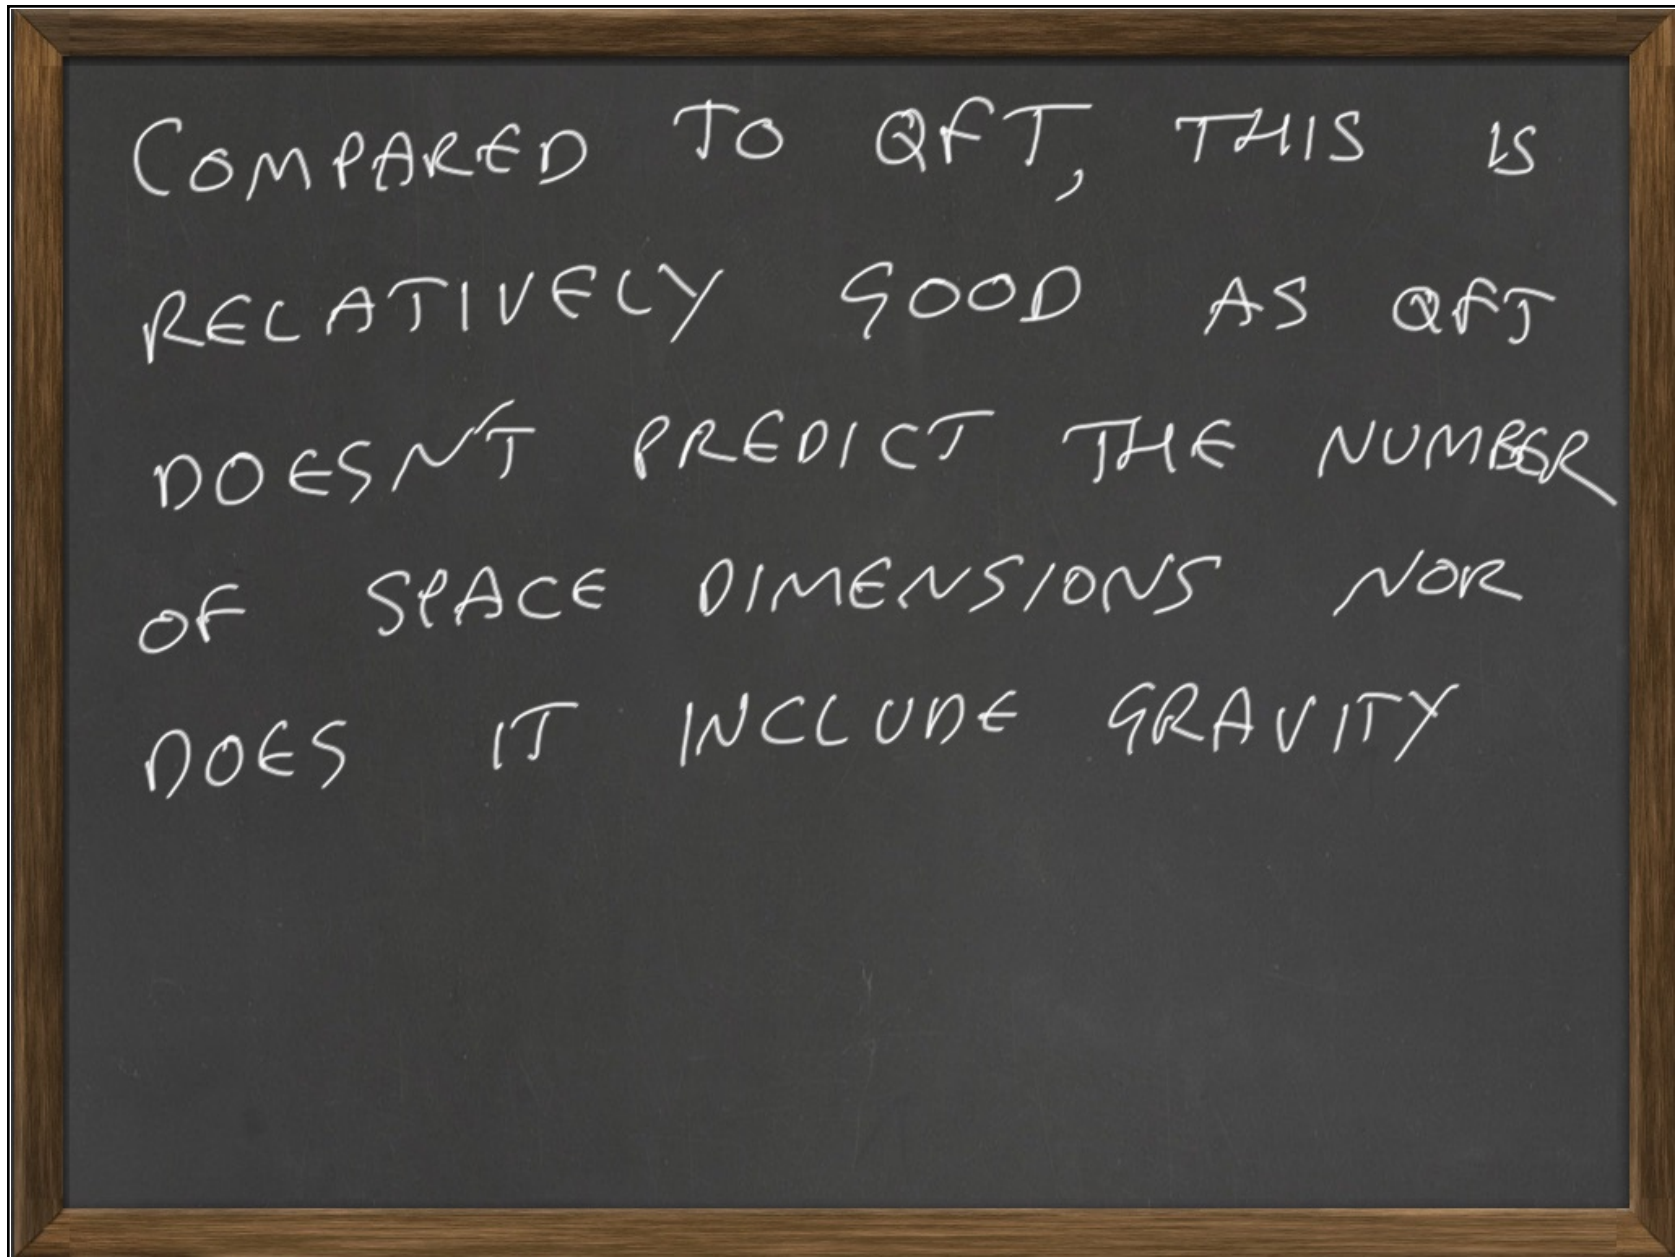 COMPARED TO QFT, THIS IS
RELATIVELY GOOD AS QFT
DOESN'T PREDICT THE NUMBER
OF SPACE DIMENSIONS NOR
DOES IT INCLUDE GRAVITY